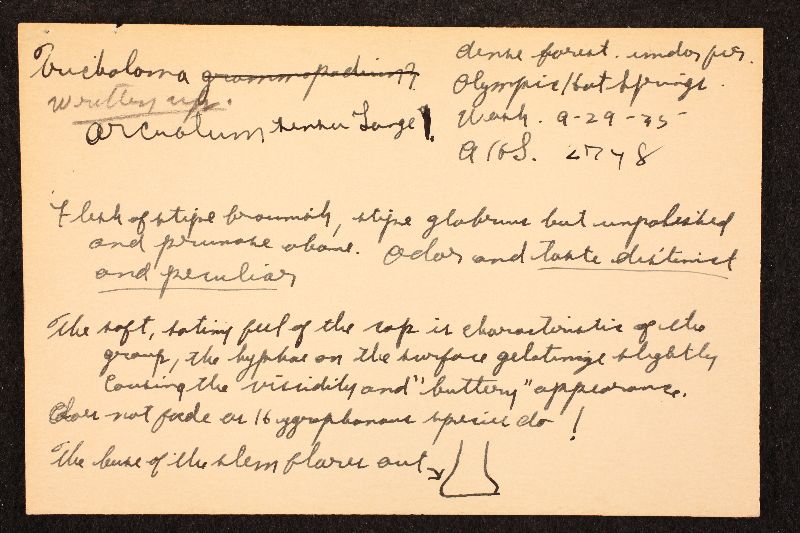 Tricholoma grammopodium?
dense forest. under firs.
written up.
Olympic Hot Springs.
arcuatum sensu Lange!
Wash. 9-29-35
AHS. 2748
Flesh of stipe brownish, stipe glabrous but unpolished
and pruinose above. Odor and taste distinct
and peculiar
The soft, satiny feel of the cap is characteristic of the
group, the hyphae on the surface gelatinize slightly
causing the viscidity and "buttery" appearance.
Does not fade as hygrophanous species do!
The base of the stem flares out